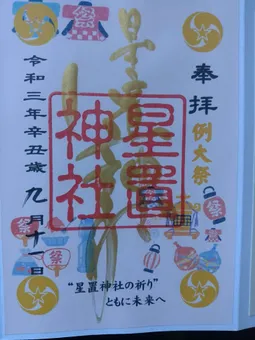 奉拝
例大祭
星置神社
星置神社
令和三年辛丑歳九月十一日
祭
祭
祭
祭
"星置神社の祈り"
ともに未来へ